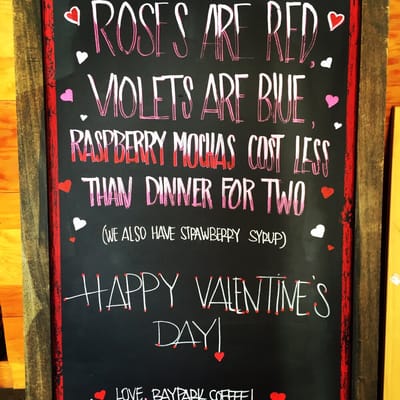 ROSES ARE RED,
VIOLETS ARE BLUE,
RASPBERRY MOCHAS COST LESS
THAN DINNER FOR TWO
(WE ALSO HAVE STRAWBERRY SYRUP)
HAPPY VALENTINE'S
DAY!
LOVE, BAYPARK COFFEE!